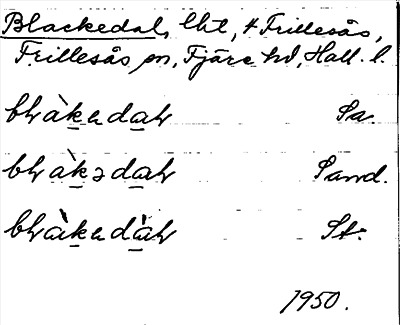 Blackedal, lht, + Frillesås,
Frillesås sn, Fjäre hd, Hall. l.
blàkadaɫ Sa.
blàkədaɫ Sand.
blàkadàɫ St.
1950.